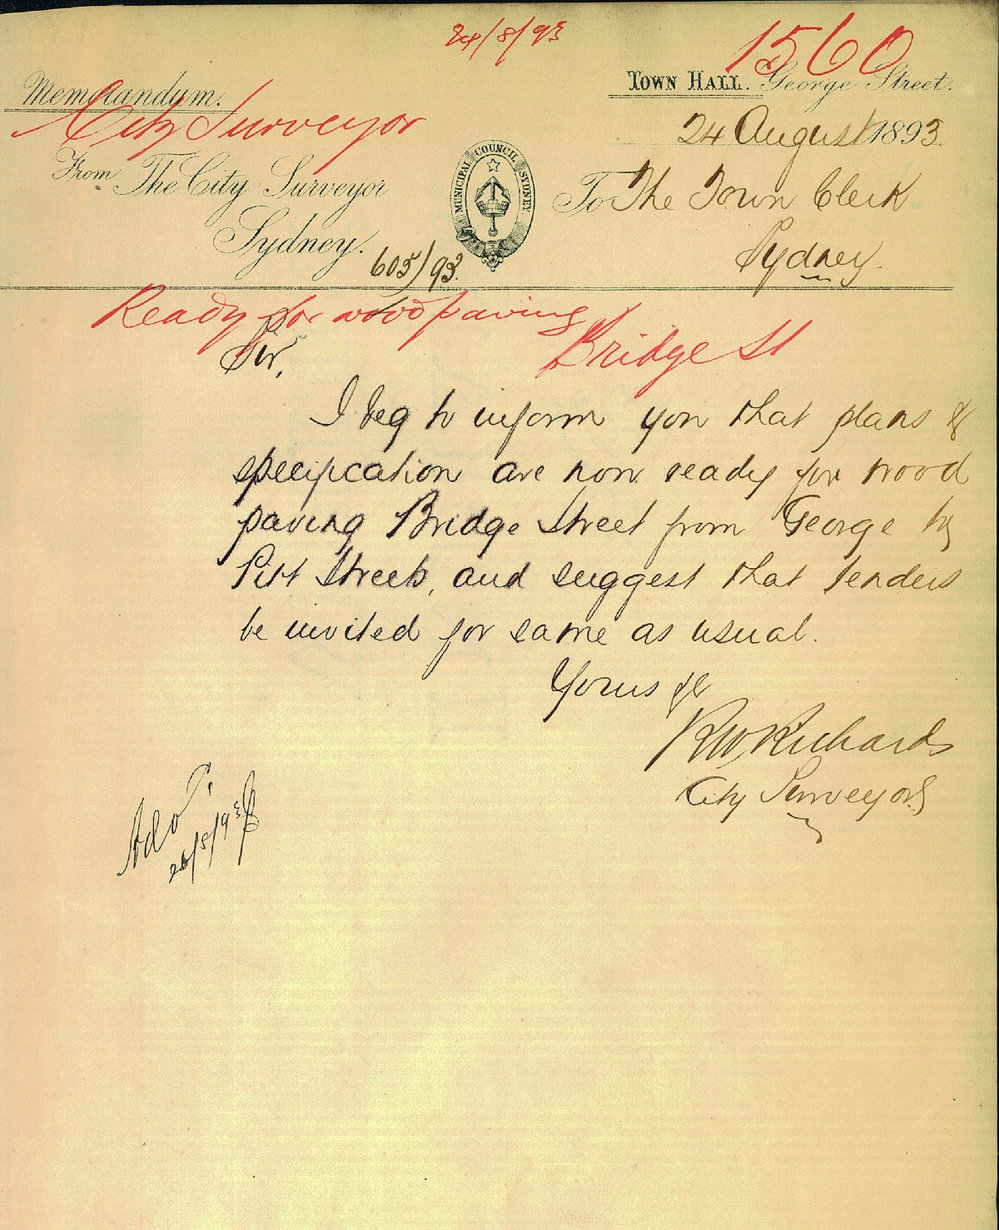 24/8/93
1560
Memorandum.
TOWN HALL. George Street.
City Surveyor
24 August 1893.
From The City Surveyor
Sydney.
MUNICIPAL COUNCIL SYDNEY
To The Town Clerk
Sydney.
605/93
Ready for wood paving
Bridge St
Sir,
I beg to inform you that plans &
specification are now ready for wood
paving Bridge Street from George to
Pitt Streets, and suggest that tenders
be invited for same as usual.
Yours &c
R W Richards
City Surveyor